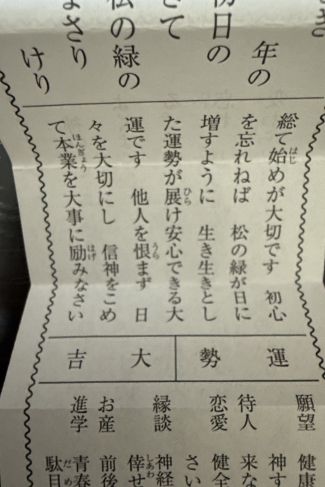 年の
初日の
さて
松の緑の
まさり
けり
総て始めが大切です　初心
を忘れねば　松の緑が日に
増すように　生き生きとし
た運勢が展け安心できる大
運です　他人を恨まず　日
々を大切にし　信神をこめ
て本業を大事に励みなさい
運勢
大吉
願望　健康
　　　神す
待人　来な
恋愛　健全
　　　さい
縁談　神経
　　　倖せ
お産　前後
進学　青春
　　　駄目